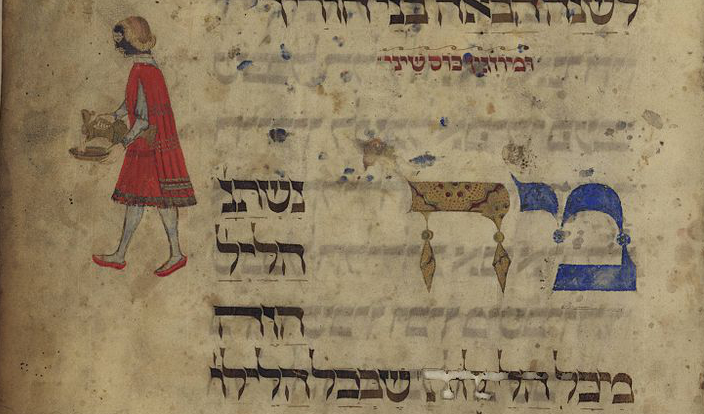 לשנה הבאה בני חורין
ומוזגין כוס שיני
מה נשתנ
הליל
הזה
מכל הלילות שבכל הלילו